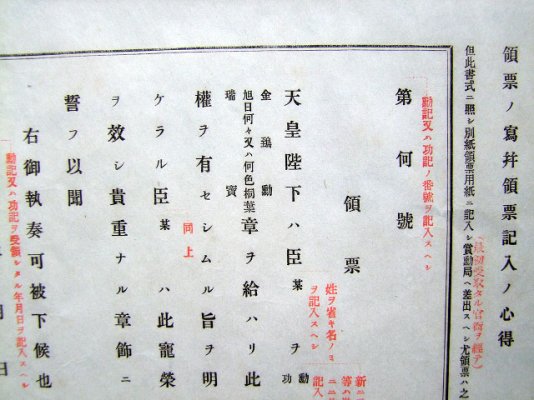 領票ノ寫幷領票記入ノ心得
但此書式ニ照シ別紙領票用紙ニ記入シ賞勳局ヘ差出スヘシ尤領票ハ之
(最初受取タル官衙ヲ經テ)
勳記又ハ功記ノ番號ヲ記入スヘシ
第何號
領票
姓ヲ省キ名ノミ
ヲ記入スヘシ
天皇陛下ハ臣某ヲ勳功
金鵄勳
旭日何々又ハ何色桐葉章ヲ給ハリ此
瑞寶
權ヲ有セシムル旨ヲ明
同上
ケラル臣某ハ此寵榮
ヲ效シ貴重ナル章飾ニ
誓フ以聞
右御執奏可被下候也
勳記又ハ功記ヲ受領シタル年月日ヲ記入スヘシ
月日